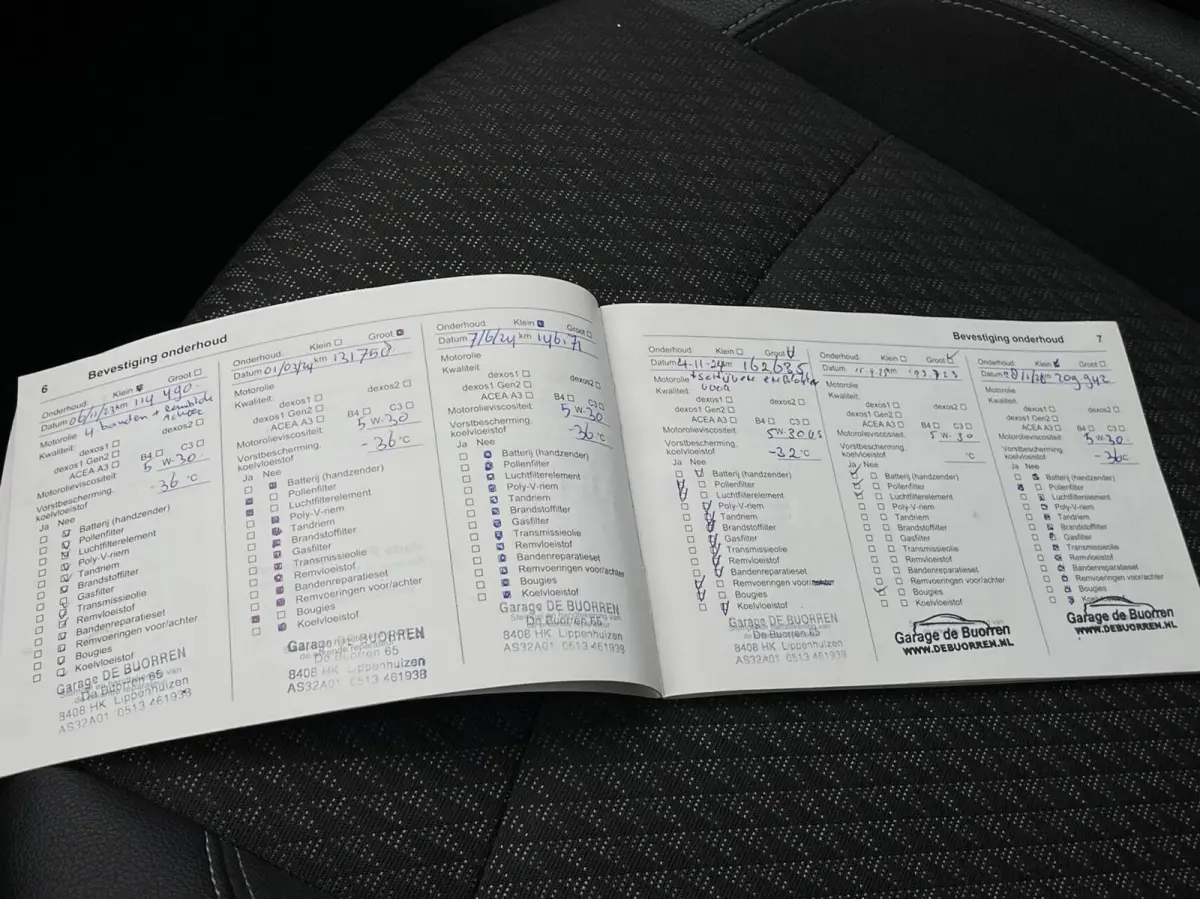 6 Bevestiging onderhoud
Onderhoud: Klein Groot
Datum 06/11/23 km 114 490
Motorolie 4 banden + remblok
Kwaliteit: dexos2
dexos1
dexos1 Gen2
ACEA A3 B4 C3
Motorolieviscositeit 5 W-30
Vorstbescherming,
koelvloeistof -36 °C
Ja Nee
Batterij (handzender)
Pollenfilter
Luchtfilterelement
Poly-V-riem
Tandriem
Brandstoffilter
Gasfilter
Transmissieolie
Remvloeistof
Bandenreparatieset
Remvoeringen voor/achter
Bougies
Koelvloeistof
Garage DE BUORREN
De Buorren 65
8408 HK Lippenhuizen
AS32A01 0513 461938
Onderhoud: Klein Groot
Datum 01/03/24 km 131750
Motorolie
Kwaliteit: dexos2
dexos1
dexos1 Gen2
ACEA A3 B4 C3
Motorolieviscositeit 5 W-30
Vorstbescherming,
koelvloeistof -36 °C
Ja Nee
Batterij (handzender)
Pollenfilter
Luchtfilterelement
Poly-V-riem
Tandriem
Brandstoffilter
Gasfilter
Transmissieolie
Remvloeistof
Bandenreparatieset
Remvoeringen voor/achter
Bougies
Koelvloeistof
Garage DE BUORREN
De Buorren 65
8408 HK Lippenhuizen
AS32A01 0513 461938
Onderhoud: Klein Groot
Datum 7/6/24 km 146171
Motorolie
Kwaliteit:
dexos1 dexos2
dexos1 Gen2
ACEA A3 B4 C3
Motorolieviscositeit 5 W-30
Vorstbescherming,
koelvloeistof -36 °C
Ja Nee
Batterij (handzender)
Pollenfilter
Luchtfilterelement
Poly-V-riem
Tandriem
Brandstoffilter
Gasfilter
Transmissieolie
Remvloeistof
Bandenreparatieset
Remvoeringen voor/achter
Bougies
Koelvloeistof
Garage DE BUORREN
De Buorren 65
8408 HK Lippenhuizen
AS32A01 0513 461938
Bevestiging onderhoud 7
Onderhoud: Klein Groot
Datum 4-11-24 km 162635
Motorolie + schijven en blokken
voor
Kwaliteit:
dexos1 dexos2
dexos1 Gen2
ACEA A3 B4 C3
Motorolieviscositeit 5W30
Vorstbescherming,
koelvloeistof -32 °C
Ja Nee
Batterij (handzender)
Pollenfilter
Luchtfilterelement
Poly-V-riem
Tandriem
Brandstoffilter
Gasfilter
Transmissieolie
Remvloeistof
Bandenreparatieset
Remvoeringen voor/achter
Bougies
Koelvloeistof
Garage DE BUORREN
De Buorren 65
8408 HK Lippenhuizen
AS32A01 0513 461938
Onderhoud: Klein Groot
Datum km
Motorolie
Kwaliteit:
dexos1 dexos2
dexos1 Gen2
ACEA A3 B4 C3
Motorolieviscositeit 5 W 30
Vorstbescherming,
koelvloeistof °C
Ja Nee
Batterij (handzender)
Pollenfilter
Luchtfilterelement
Poly-V-riem
Tandriem
Brandstoffilter
Gasfilter
Transmissieolie
Remvloeistof
Bandenreparatieset
Remvoeringen voor/achter
Bougies
Koelvloeistof
Garage de Buorren
WWW.DEBUORREN.NL
Onderhoud: Klein Groot
Datum km 209942
Motorolie
Kwaliteit:
dexos1 dexos2
dexos1 Gen2
ACEA A3 B4 C3
Motorolieviscositeit 5 W-30
Vorstbescherming,
koelvloeistof -36 °C
Ja Nee
Batterij (handzender)
Pollenfilter
Luchtfilterelement
Poly-V-riem
Tandriem
Brandstoffilter
Gasfilter
Transmissieolie
Remvloeistof
Bandenreparatieset
Remvoeringen voor/achter
Bougies
Koelvloeistof
Garage de Buorren
WWW.DEBUORREN.NL